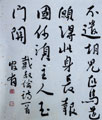 不遣胡兒匹馬還
願得此身長報
國何須生入玉
門關
戴叔倫詩